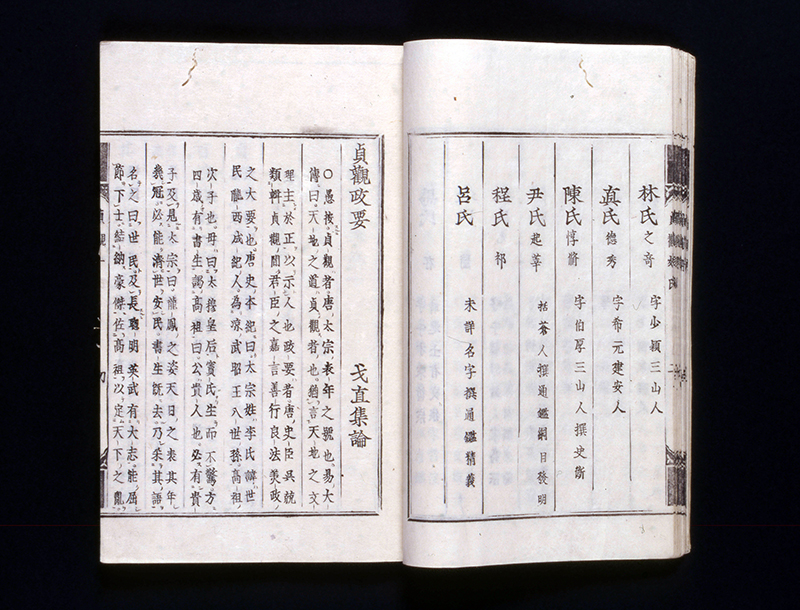 林氏 之奇 字少穎三山人
真氏 德秀 字希元建安人
陳氏 惇脩 字伯厚三山人撰史斷
尹氏 起莘 括蒼人撰通鑑綱目發明
程氏
呂氏 未詳名字撰通鑑精義
貞觀政要 戈直集論
○愚按貞觀者唐太宗表年之號也易大
傳曰天地之道貞觀者也猶言天地之文
理主於正以示人也政要者唐史臣吳兢
類輯貞觀間君臣之嘉言善行良法美政
之大要也唐史本紀曰太宗姓李氏諱世
民隴西成紀人為凉武昭王八世孫高祖
次子也母曰太穆皇后竇氏生而不驚方
四歲有書生謁高祖曰公貴人也必有貴
子及見太宗曰龍鳳之姿天日之表其年
幾冠必能濟世安民書生旣去乃采其語
名之曰世民及長聰明英武有大志能屈
節下士結納豪傑佐高祖以定天下之亂